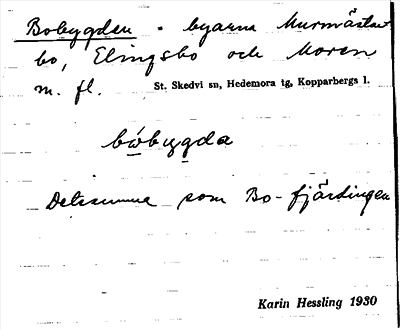 Bobygden - byarna Murmästar
bo, Elingsbo och Moren
m. fl. St. Skedvi sn, Hedemora tg, Kopparbergs l.
bώbygda
Detsamma som Bo-fjärdingen
Karin Hessling 1930